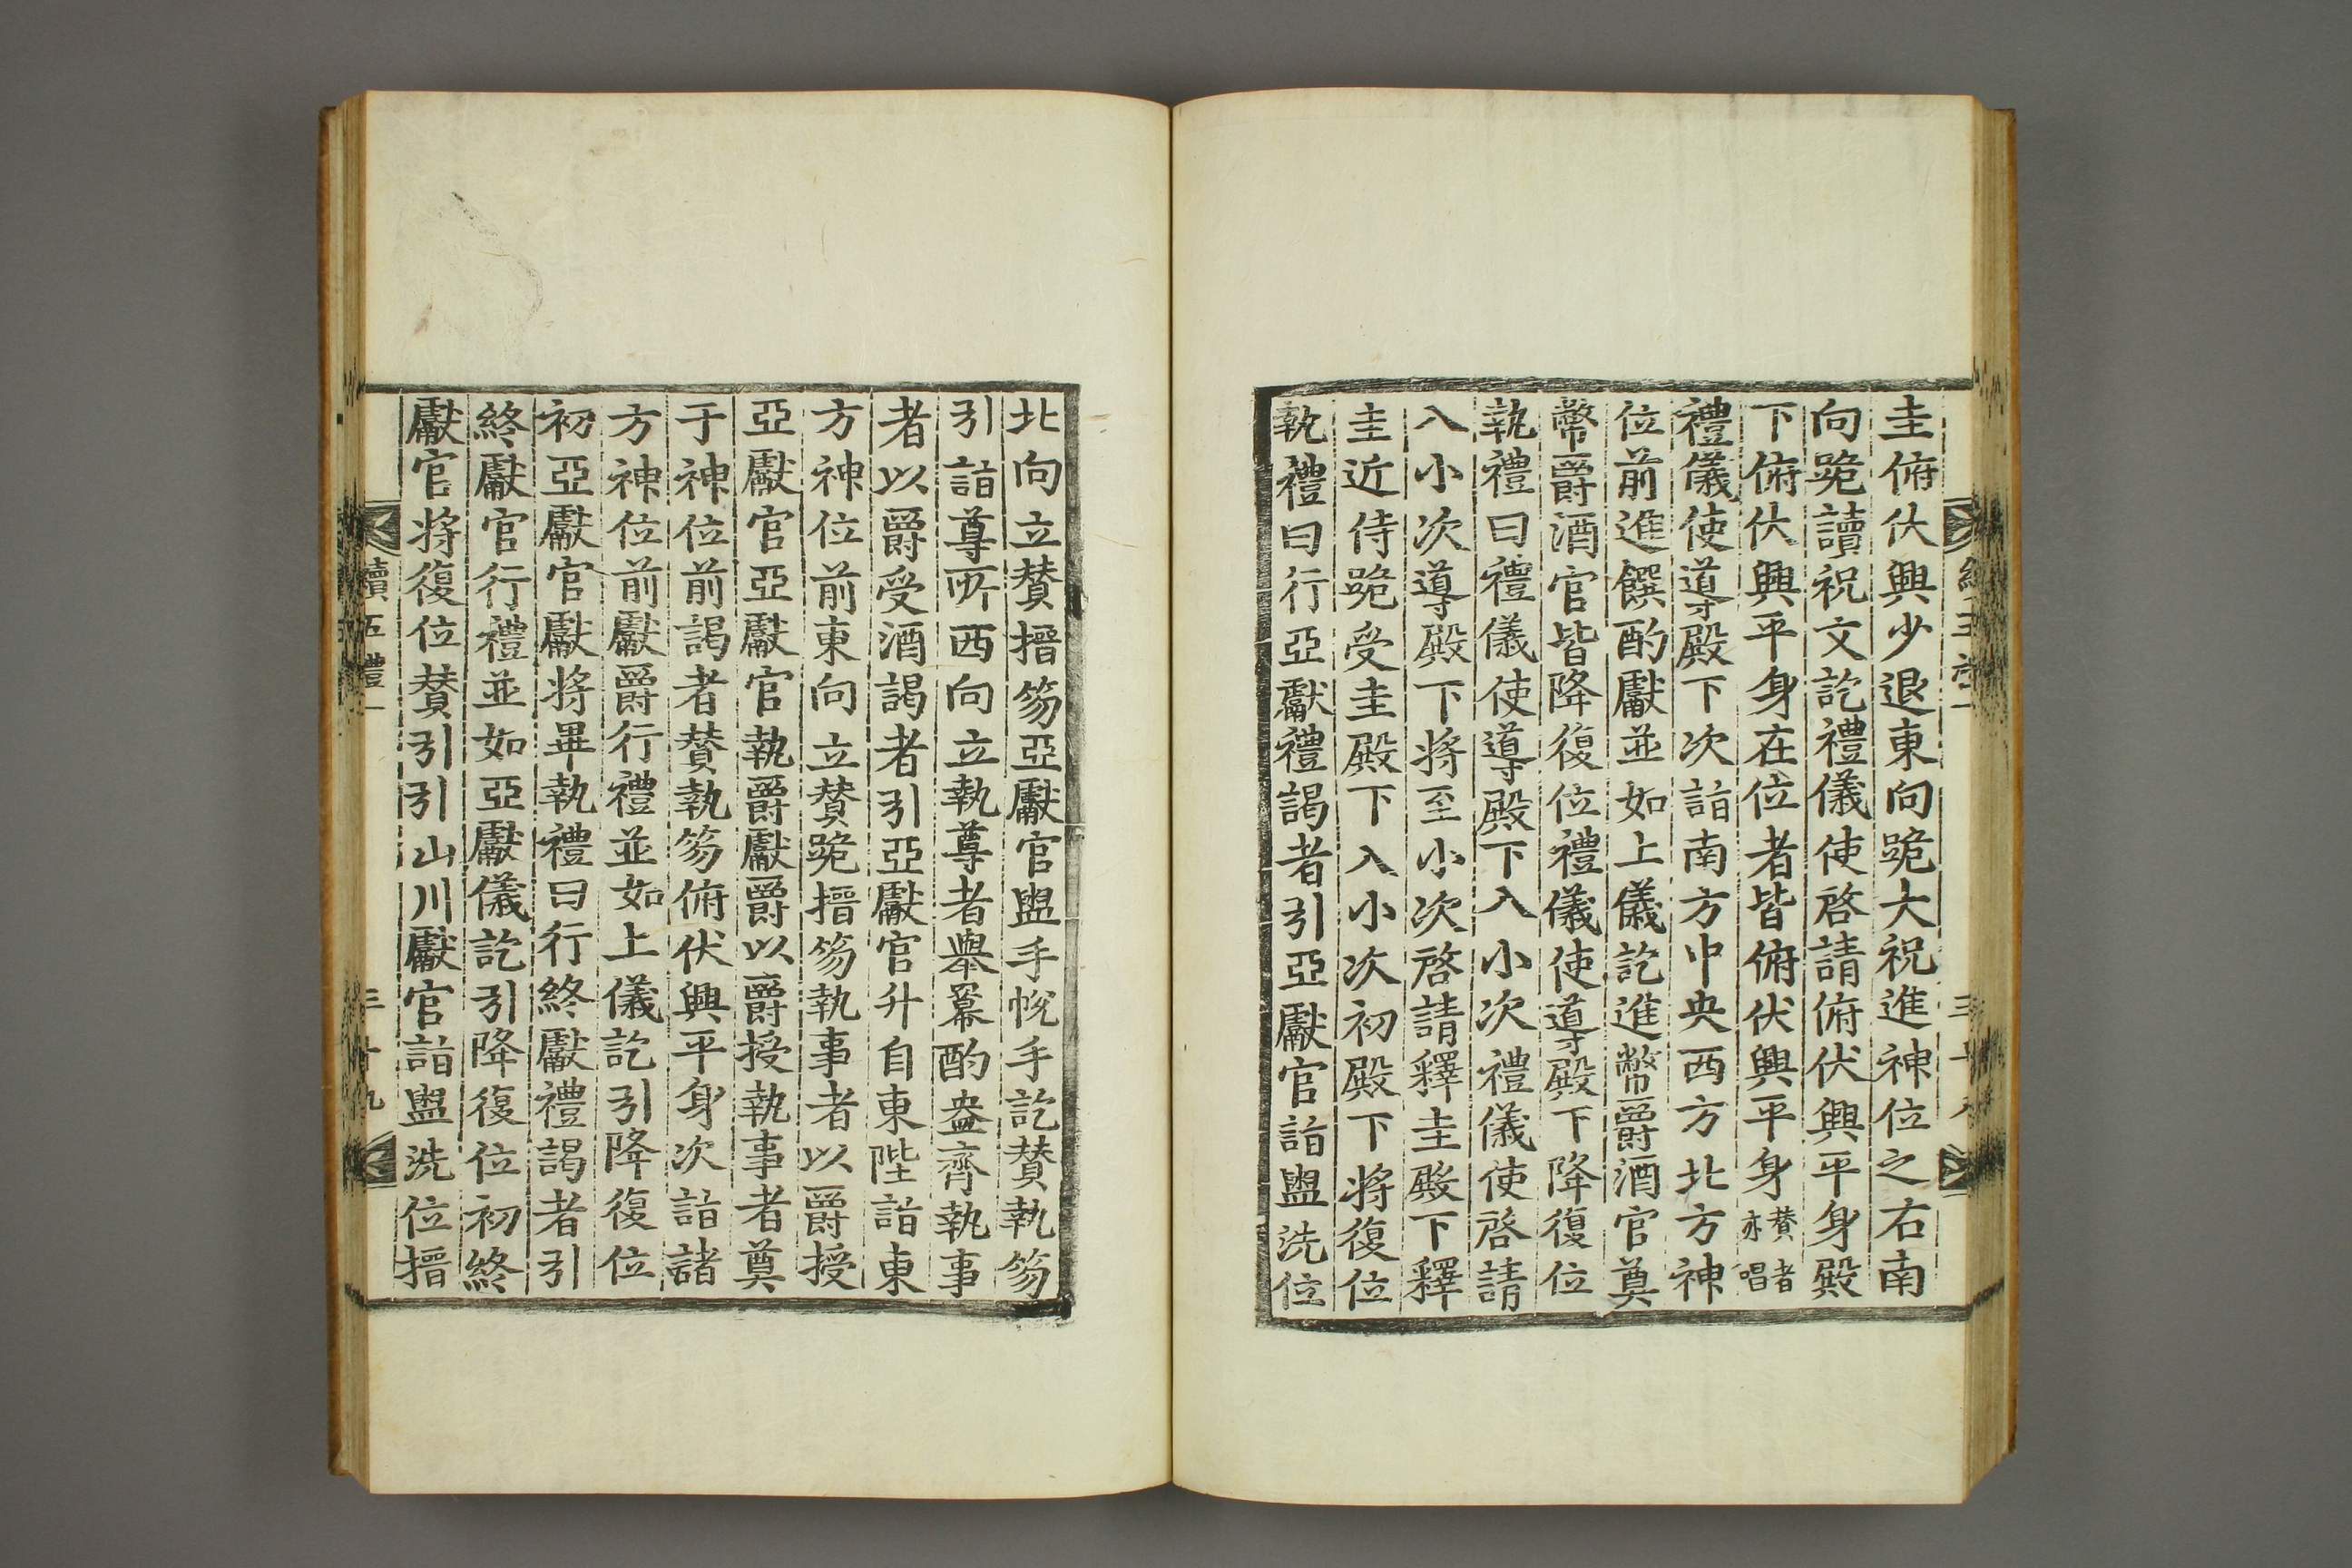 圭俯伏興少退東向跪大祝進神位之右南
向跪讀祝文訖禮儀使啓請俯伏興平身殿
下俯伏興平身在位者皆俯伏興平身贊者亦唱
禮儀使導殿下次詣南方中央西方北方神
位前進饌酌獻並如上儀訖進幣爵酒官奠
幣爵酒官皆降復位禮儀使導殿下降復位
執禮曰禮儀使導殿下入小次禮儀使啓請
入小次導殿下將至小次啓請釋圭殿下釋
圭近侍跪受圭殿下入小次初殿下將復位
執禮曰行亞獻禮謁者引亞獻官詣盥洗位
北向立贊搢笏亞獻官盥手帨手訖贊執笏
引詣尊所西向立執尊者擧羃酌盎齊執事
者以爵受酒謁者引亞獻官升自東陛詣東
方神位前東向立贊跪搢笏執事者以爵授
亞獻官亞獻官執爵獻爵以爵授執事者奠
于神位前謁者贊執笏俯伏興平身次詣諸
方神位前獻爵行禮並如上儀訖引降復位
初亞獻官獻將畢執禮曰行終獻禮謁者引
終獻官行禮並如亞獻儀訖引降復位初終
獻官將復位贊引引山川獻官詣盥洗位搢
續五禮一
三十九